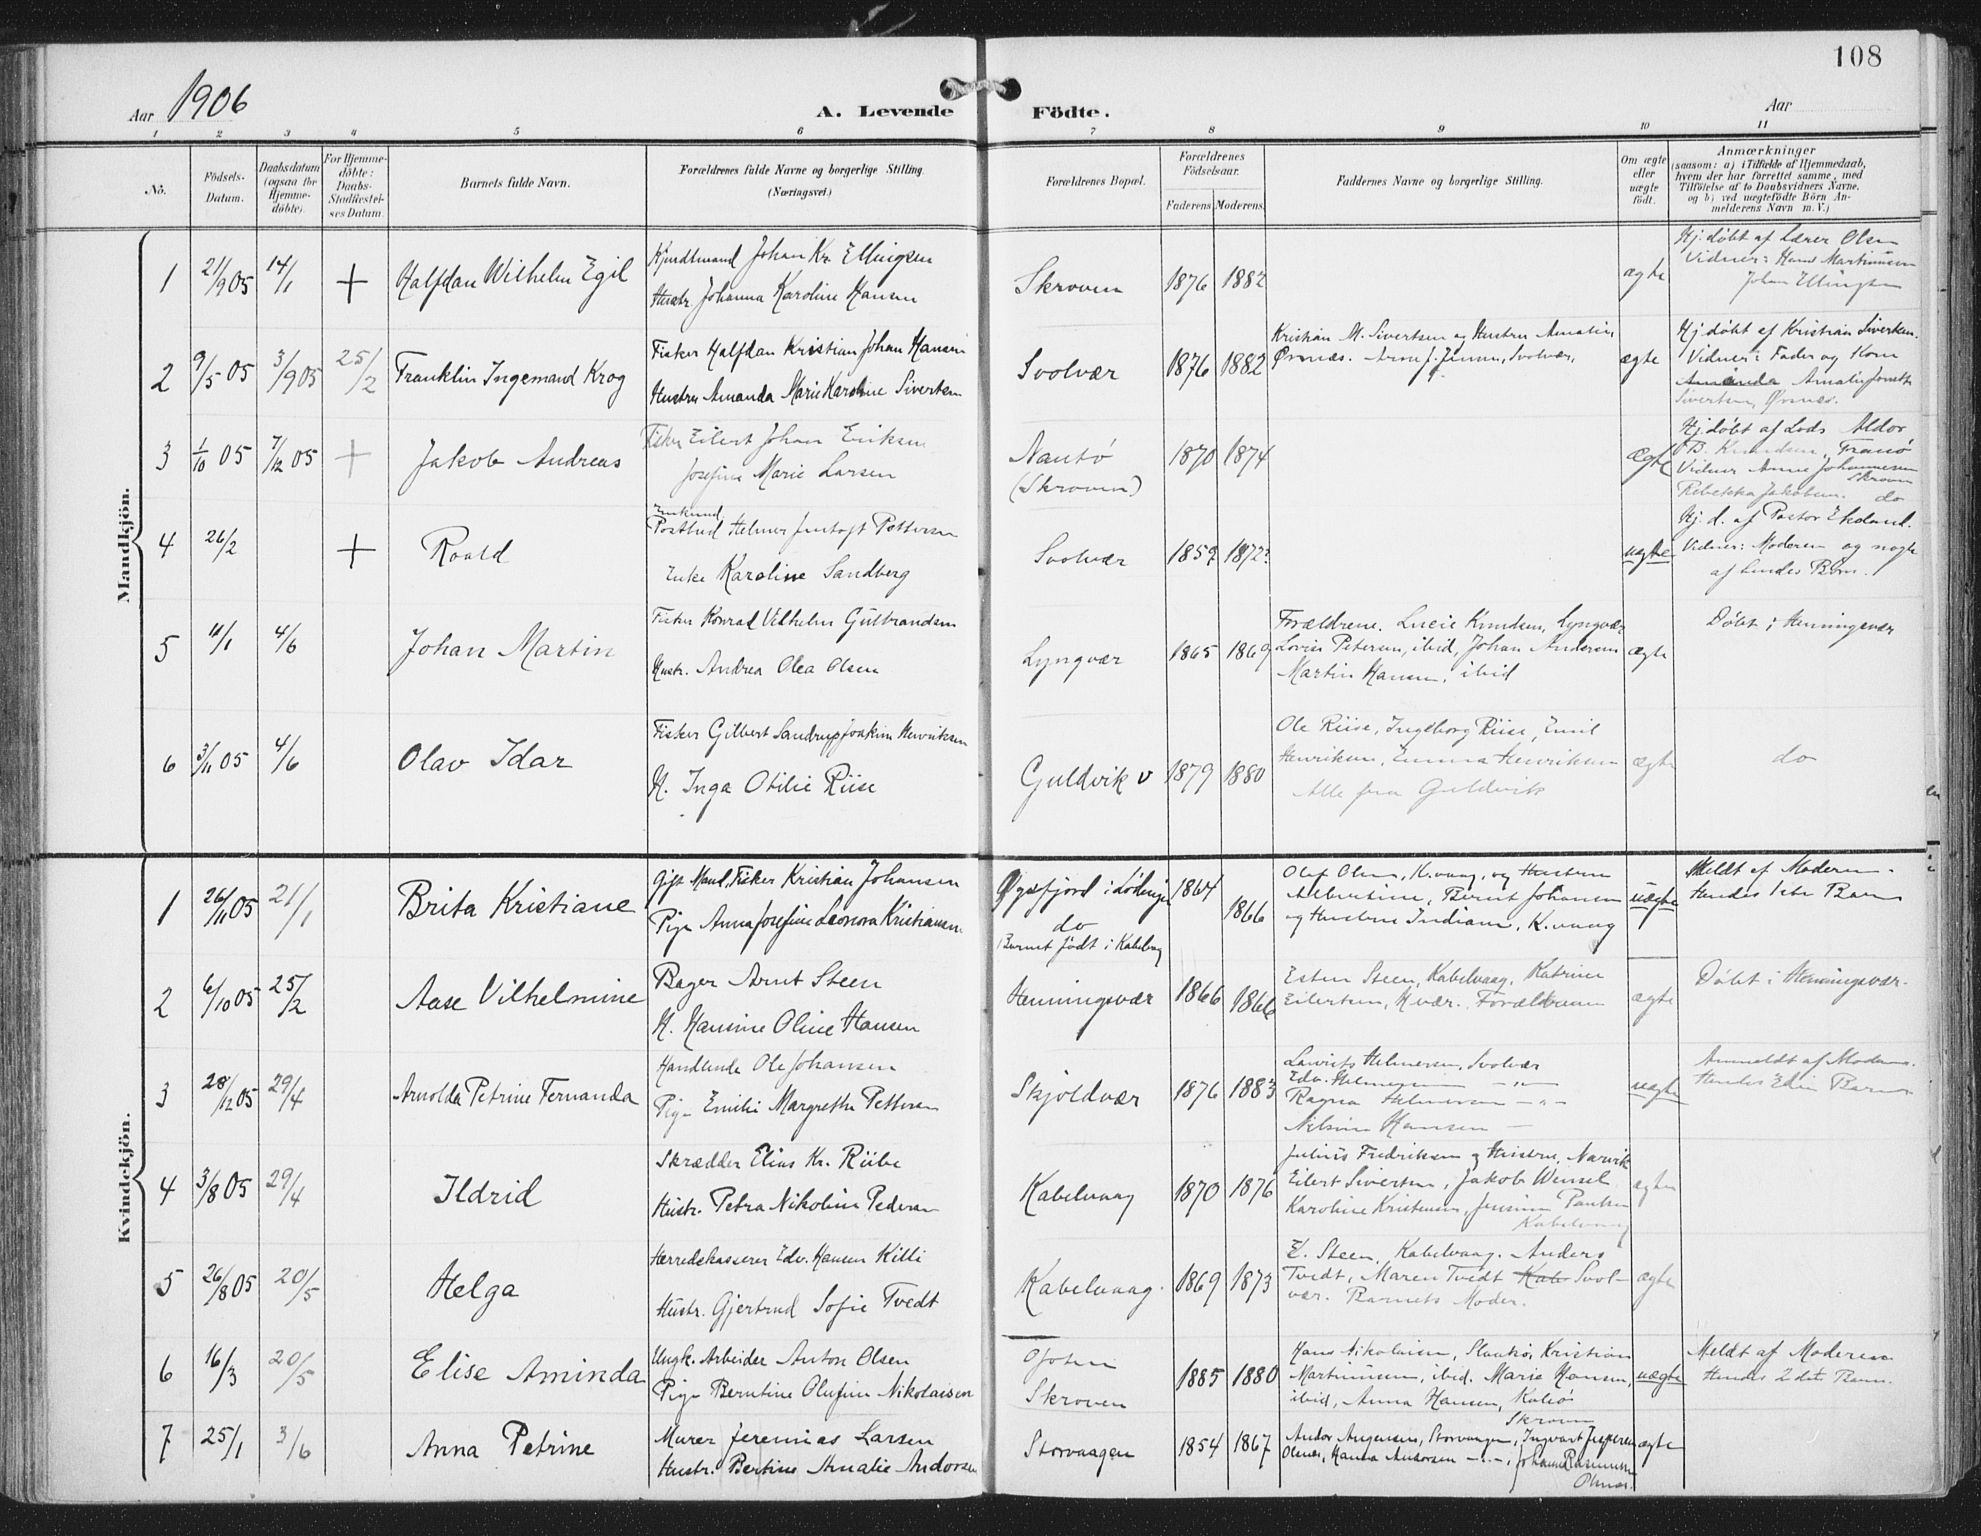 108
Aar 1906
A. Levende Födte.
Aar
1 2 3 4 5 6 7 8 9 10 11
Nô.
Födsels-Datum.
Daabsdatum (ogsaa for Hjemme-döbte).
For Hjemme-döbte: Daabs-Stadfæstel-ses Datum.
Barnets fulde Navn.
Forældrenes fulde Navne og borgerlige Stilling.
(Næringsvei.)
Forældrenes Bopæl.
Forældrenes Födselsaar.
Faderens. Moderens.
Faddernes Navne og borgerlige Stilling.
Om ægte eller uægte födt.
Anmærkninger
(saasom: a) i Tilfælde af Hjemmedaab,
hvem der har forrettet samme, med
Tilföielse af to Daabsvidners Navne,
og b) ved uægtefödte Börn An-
melderens Navn m. V.)
Mandkjön.
1 21/9 05 14/1 + Halfdan Wilhelm Egil
Johan Kr. Ellingsen
Hustr. Johanna Karoline Hansen
Skroven 1876 1882 ægte
Hj. döbt af Lærer Olsen
Vidner: Hans Martinusen
Johan Ellingsen
2 9/5 05 3/9 05 25/2 Franklin Ingemand Krog
Fisker Halfdan Kristian Johan Hansen
Hustru Amanda Marie Karoline Sivertsen
Svolvær 1876 1882
Kristian M. Sivertsen og Hustru Amalie
Ørsnæs. Svolvær.
ægte
Hj. döbt af Kristian Sivertsen.
Vidner: Fader og Kone
Amanda Amalie
Sivertsen, Ørsnæs.
3 1/10 05 7/12 05 + Jakob Andreas
Fisker Eilert Johan Eriksen
Josefine Marie Larsen
(Skroven) 1870 1874 ægte
Hj. döbt af Lods Aldor
B. Knudsen,
Vidner Anne Johannesen
Skroven
Rebekka Jakobsen. do
4 26/2 + Roald
Enkemd.
Postbud Helmer Pettersen
Enke Karoline Sandberg
Svolvær 1859 1872? uægte
Hj. d. af Pastor
Vidner: Moderen og nogle
af hendes Börn.
5 11/1 4/6 Johan Martin
Fisker Konrad Vilhelm Gulbrandsen
Hustr. Andrea Olea Olsen
Lyngvær 1865 1869
Forældrene. Lucie Knudsen, Lyngvær
Lovise Petersen, ibid, Johan Andersen
Martin Hansen, ibid
ægte
Döbt i Henningsvær
6 3/11 05 4/6 Olav Idar
Fisker Gilbert Sandrup Joakim Henriksen
H. Inga Otilie Riise
Guldvik v 1879 1880
Ole Riise, Ingeborg Riise, Emil
Henriksen, Emma Henriksen
Alle fra Guldvik
ægte
do
Kvindekjön.
1 26/11 05 21/1 Brita Kristiane
Gift Mand, Fisker Kristian Johansen
Pige Anna Josefine Leonora Kristiansen
Øgsfjord i Lödingen
do
Barnet födt i Kabelvaag
1864 1866
Olaf Olsen, K.vaag, og Hustru
Albertine, Bernt Johansen
og Hustru Indiane, K.vaag
uægte
Meldt af Moderen.
Hendes 1ste Barn
2 6/10 05 25/2 Aase Vilhelmine
Bager Arnt Steen
H. Hansine Oline Hansen
Henningsvær 1866 1866
Ester Steen, Kabelvaag, Katrine
Eilertsen, H.vær. Forældrene
ægte
Döbt i Henningsvær.
3 28/12 05 29/4 Arnolda Petrine Fernanda
Handlende Ole Johansen
Pige Emilie Margrethe Pettersen
Skjoldvær 1876 1883
Lauritz Helmersen, Svolvær
Edv. Helmersen — " —
Ragna Helmersen — " —
Nilsine Hansen —
uægte
Anmeldt af Moderen.
Hendes Barn
4 3/8 05 29/4 Ildrid
Skrædder Elias Kr. Riibe
Hustr. Petra Nikoline Pedersen
Kabelvaag 1870 1876
Julius Fredriksen og Hustru, Narvik
Eilert Sivertsen, Jakob Wensel
Karoline Kristensen, Jensine Paulsen
Kabelvaag
ægte
5 26/8 05 20/5 Helga
Herredskasserer Edv. Hansen Killi
Hustr. Gjertrud Sofie Tvedt
Kabelvaag. 1869 1873
E. Steen, Kabelvaag. Anders
Tvedt, Maren Tvedt Kab Svol-
vær. Barnets Moder.
ægte
6 16/3 20/5 Elise Aminda
Ungk. Arbeider Anton Olsen
Pige Berntine Olufine Nikolaisen
Ofoten
Skroven
1885 1880
Hans Nikolaisen, Kristian
Martinusen, ibid. Marie Hansen,
ibid, Anna Hansen,
Skroven
uægte
Meldt af Moderen
Hendes 2det Barn.
7 25/1 3/6 Anna Petrine
Murer Jeremias Larsen
Hustr. Bertine Amalie Andorsen
Storvaagen 1854 1867
Andor Storvaagen, Ingvart Jespersen
Hanna Andorsen — " —, Johanna Rasmussen
ægte